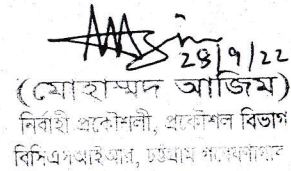 28/9/22
(মোহাম্মদ আজিম)
নির্বাহী প্রকৌশলী, প্রকৌশল বিভাগ
বিসিএসআইআর, চট্টগ্রাম গবেষণাগার